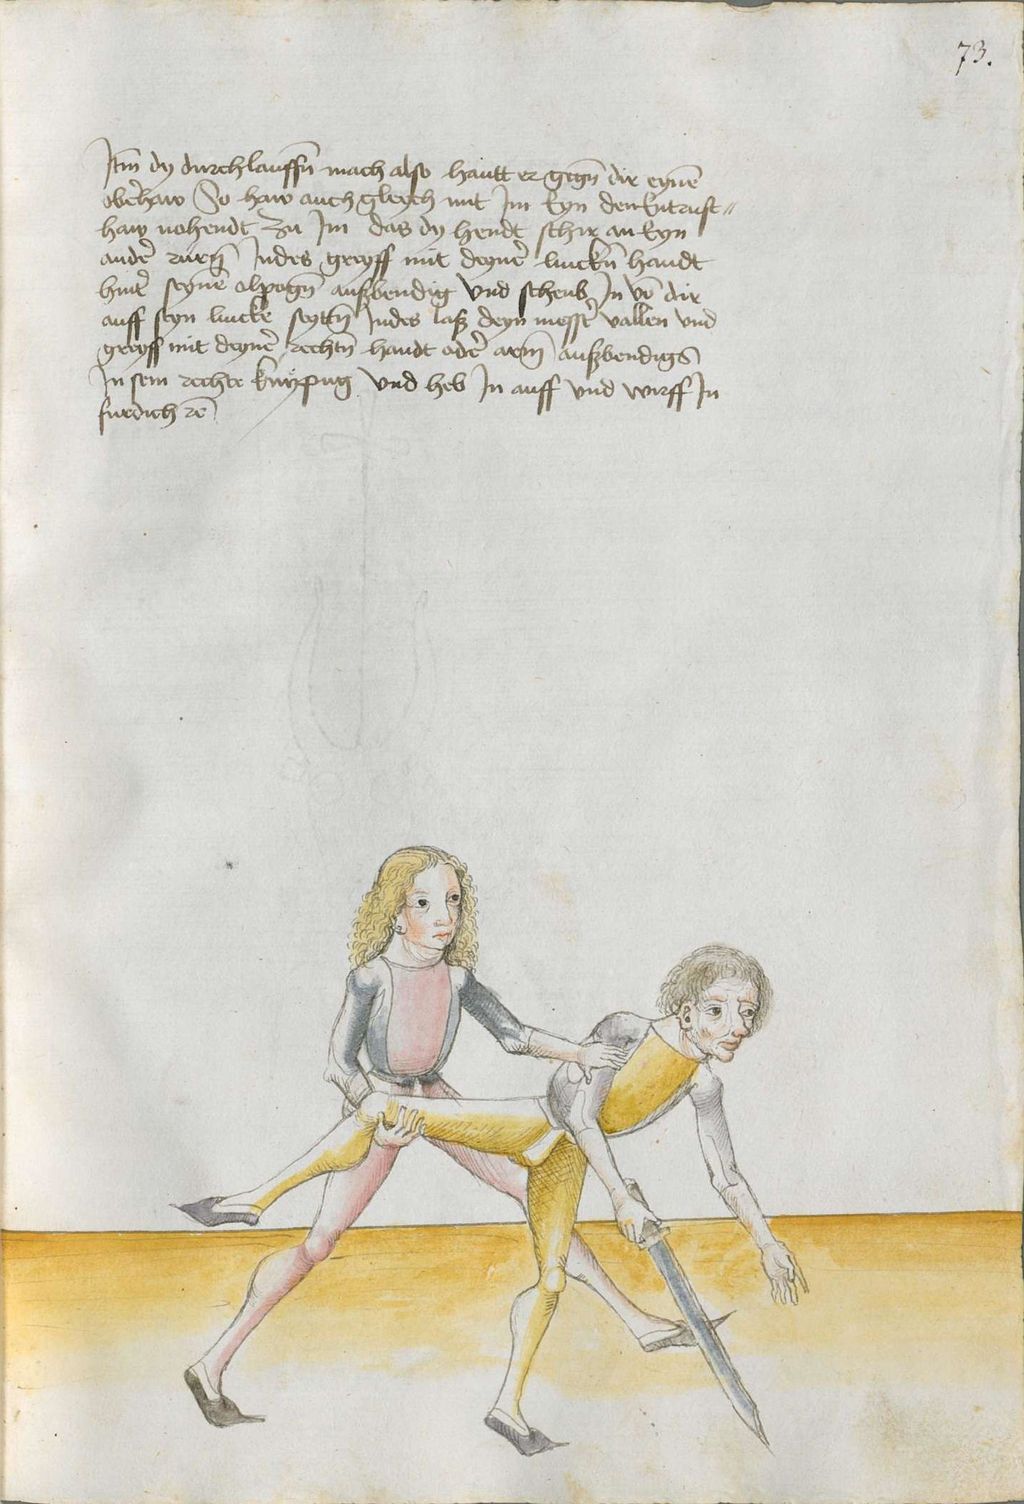 73.
Itm̄ dy durchlauffn̄ mach also hautt er gegn̄ dir eynē
ob̄erhaw So haw auch gleych mit Im eyn den Entrust〃
haw nohendt zu Im das dy hendt schir an eyn
and̄er rurn̄ Indes greyff mit deyn̄er linckn̄ handt
hint̄er seynē elpogn̄ außbendig Vnd scheub In vō dir
auff seyn lincke seyttn̄ Indes laß deyn mess̄er vallen vnd
greyff mit deyn̄er rechtn̄ handt od̄er arm̄ außbendigs
In sein rechte knÿpug vnd heb In auff vnd wirff In
fur dich rē